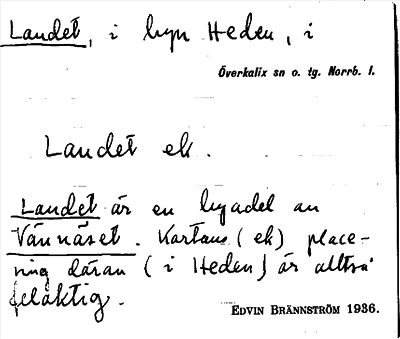 Landet, i byn Heden, i
Överkalix sn o. tg. Norrb. l.
Landet ek.
Landet är en byadel av
Vännäset. Kartans (ek) place-
ring därav (i Heden) är alltså
felaktig.
EDVIN BRÄNNSTRÖM 1936.